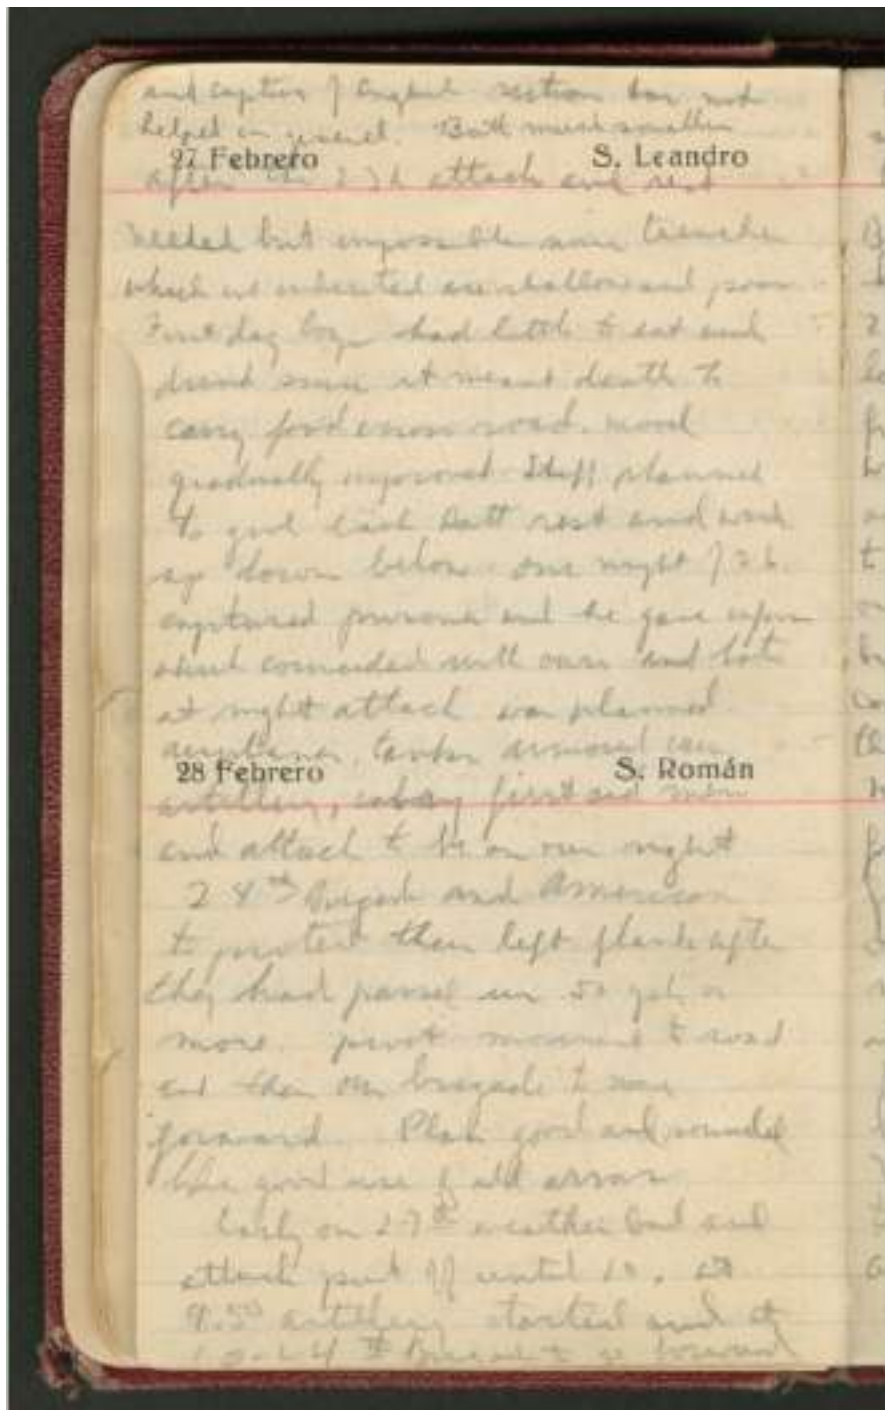 and captain of English section has not
helped in general. Batt much smaller
27 Febrero S. Leandro
after the attack and rest
needed but impossible since trenches
which we inherited are shallow and poor
First day boys had little to eat and
drink since it meant death to
carry food across road. mood
gradually improved Staff planned
to give each Batt rest and wash
up down below. one night of 26
captured prisoner and he gave
which coincided with ours and
at night attack was planned
aeroplanes, tanks armored cars
28 Febrero S. Román
artillery, first aid men
and attack to be on our right
24th Brigade and American
to protect their left flank after
they had passed us 50 yds or
more. pivot movement to road
and then our brigade to move
forward. Plan good and sounded
like good use of all arms
Early on 27th weather bad and
attack put off until 10. at
9.50 artillery started and at
10 24th Brigade to go forward